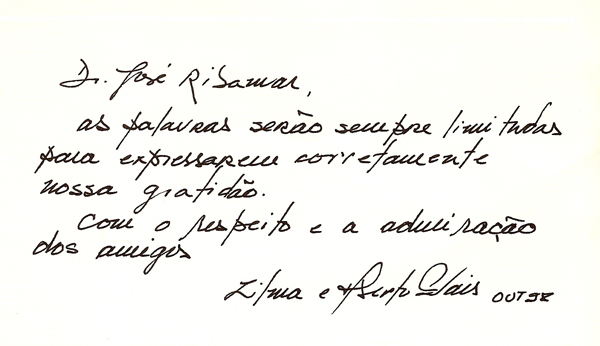 Dr. José Ribamar,
as palavras serão sempre limitadas
para expressarem corretamente
nossa gratidão.
Com o respeito e a admiração
dos amigos
Zilma e